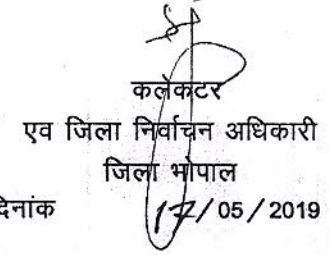 कलेक्टर
एव जिला निर्वाचन अधिकारी
जिला भोपाल
दिनांक 17/05/2019